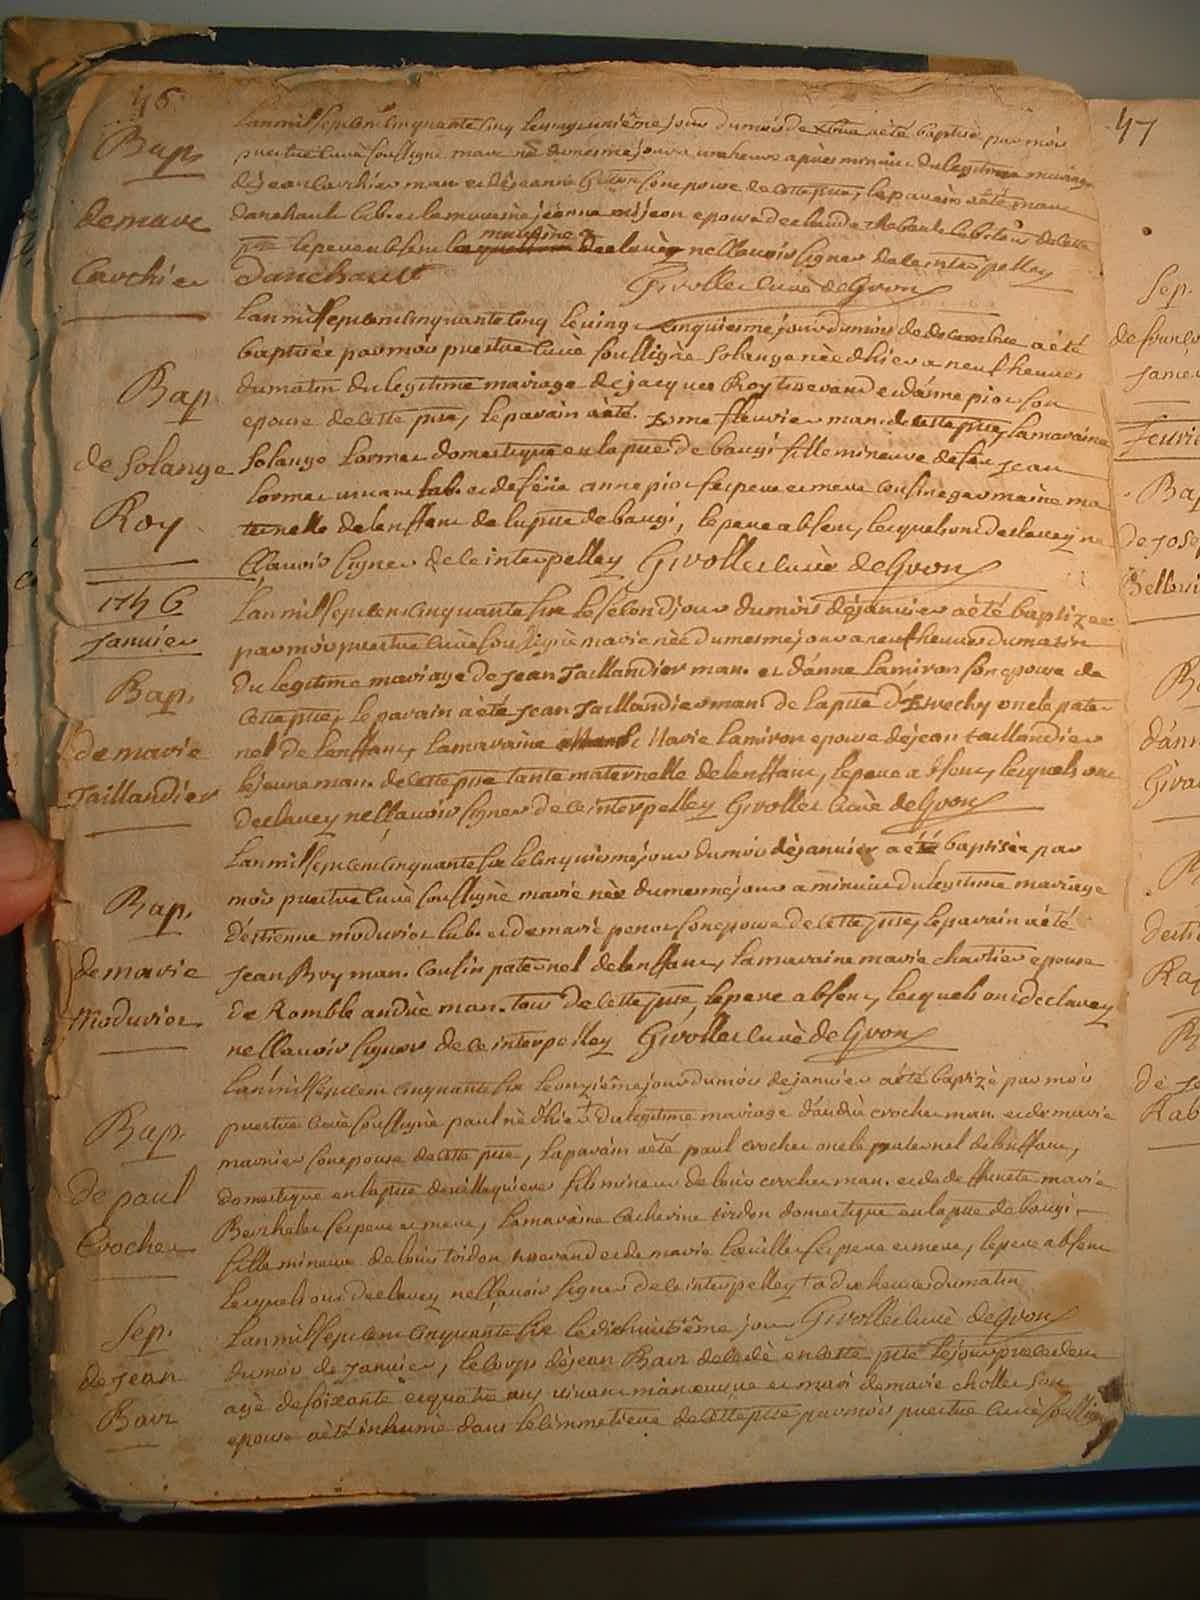 46
Bap.
de marc
Carchier
L'an mil sept cent cinquante cinq le vingt unième jour du mois de xbre a été baptisé par moi
prestre curé soussigné marc né du mesme jour a une heure apres minuit du legitime mariage
de jean carchier man. et de jeanne son epouse de cette psse, le parain a été marc
danchault lab. et la maraine jeanne mijeon epouse de claude laboureur de cette
psse le pere absent la maraine a declaré ne sçavoir signer de ce interpelley
Danchault Givollet curé de Gron
Bap.
de Solange
Roy
L'an mil sept cent cinquante cinq le vingt cinquiesme jour du mois de decembre a été
baptisée par moi prestre curé soussigné Solange née d'hier a neuf heures
du matin du legitime mariage de jacques Roy tisserand et d'anne piot son
epouse de cette psse, le parain a été fleurier man. de cette psse, la maraine
Solange Lormet domestique en la psse de baugi fille mineure de feu jean
Lormet vivant lab. et de feüe anne piot ses pere et mere cousine germaine ma
ternelle de l'enffant de la psse de baugi, le pere absent, lesquels ont declarey ne
sçavoir signer de ce interpelley Givollet curé de Gron
1756
Janvier
Bap.
de marie
Taillandier
L'an mil sept cent cinquante six le second jour du mois de janvier a été baptizee
par moi prestre curé soussigné marie née du mesme jour a neuf heures du matin
du legitime mariage de Jean Taillandier man. et d'anne Lamiron son epouse de
cette psse, le parain a été Jean Taillandier man. de la psse d'Etrechy oncle pater
nel de l'enffant, la maraine Marie Lamiron epouse de jean taillandier
le jeune man. de cette psse tante maternelle de l'enffant, le pere absent, lesquels ont
declarey ne sçavoir signer de ce interpelley Givollet Curé de Gron
Bap.
de marie
Moduriot
L'an mil sept cent cinquante six le cinquiesme jour du mois de janvier a été baptisée par
moi prestre curé soussigné marie née du mesme jour a minuit du legitime mariage
d'estienne moduriot lab. et de marie penot son epouse de cette psse, le parain a été
Jean Boy man. cousin paternel de l'enffant, la maraine marie chartier epouse
de Romble andré man. tous de cette psse, le pere absent, lesquels ont declarey
ne sçavoir signer de ce interpelley Givollet curé de Gron
Bap.
de paul
Crochet
L'an mil sept cent cinquante six le onzième jour du mois de janvier a été baptizé par moi
prestre curé soussigné paul né d'hier + du legitime mariage d'andré crochet man. et de marie
marnier son epouse de cette psse, le parain a été paul crochet oncle paternel de l'enffant,
domestique en la psse de villequiers fils mineur de loüis crochet man. et de deffunte marie
Berthelot ses pere et mere, la maraine catherine toidon domestique en la psse de baugi
fille mineure de loüis toidon tisserand et de marie ses pere et mere, le pere absent
Lesquels ont declarey ne sçavoir signer de ce interpelley + a dix heures du matin
Givollet curé de Gron
Sep.
de Jean
Bair
L'an mil sept cent cinquante six le dixhuitième jour
du mois de Janvier, le corps de jean Bair decedé en cette psse le jour precedent
agé de soixante et quatre ans vivant manoeuvre et mari de marie chollet son
epouse a été inhumé dans le cimmetiere de cette psse par moi prestre curé soussigné
47
Sep.
Janvier
Bap
de Jose
Bap
d'ann
Gira
B
Rab